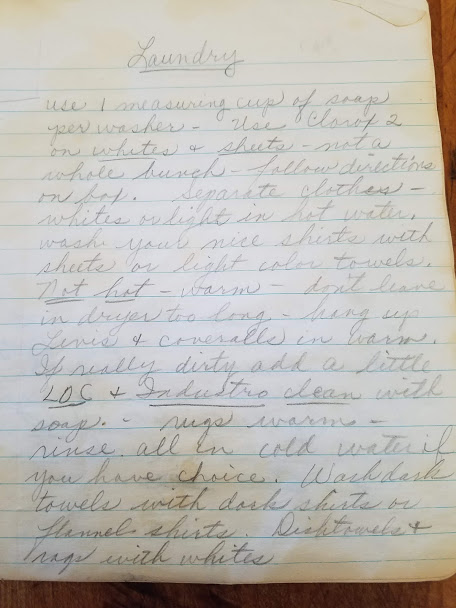 Laundry
use 1 measuring cup of soap
per washer - Use Clorox 2
on whites & sheets - not a
whole bunch - follow directions
on box. Separate clothes -
whites or light in hot water.
wash your nice shirts with
sheets or light color towels.
Not hot - warm - don't leave
in dryer too long - hang up
Levis & coveralls in warm.
If really dirty add a little
LOC & Industro clean with
soap. - rugs warm -
rinse all in cold water if
you have choice. Wash dark
towels with dark shirts or
flannel shirts. Dishtowels &
rags with whites